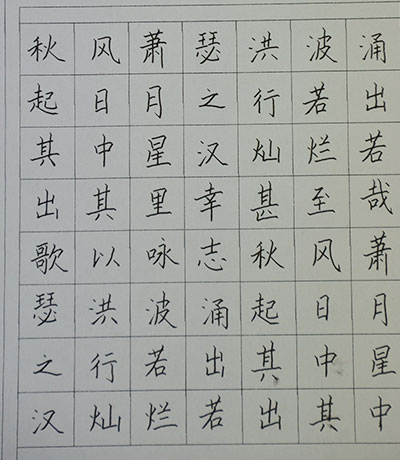 秋风萧瑟洪波涌
起日月之行若出
其中星汉灿烂若
出其里幸甚至哉
歌以咏志秋风萧
瑟洪波涌起日月
之行若出其中星
汉灿烂若出其中